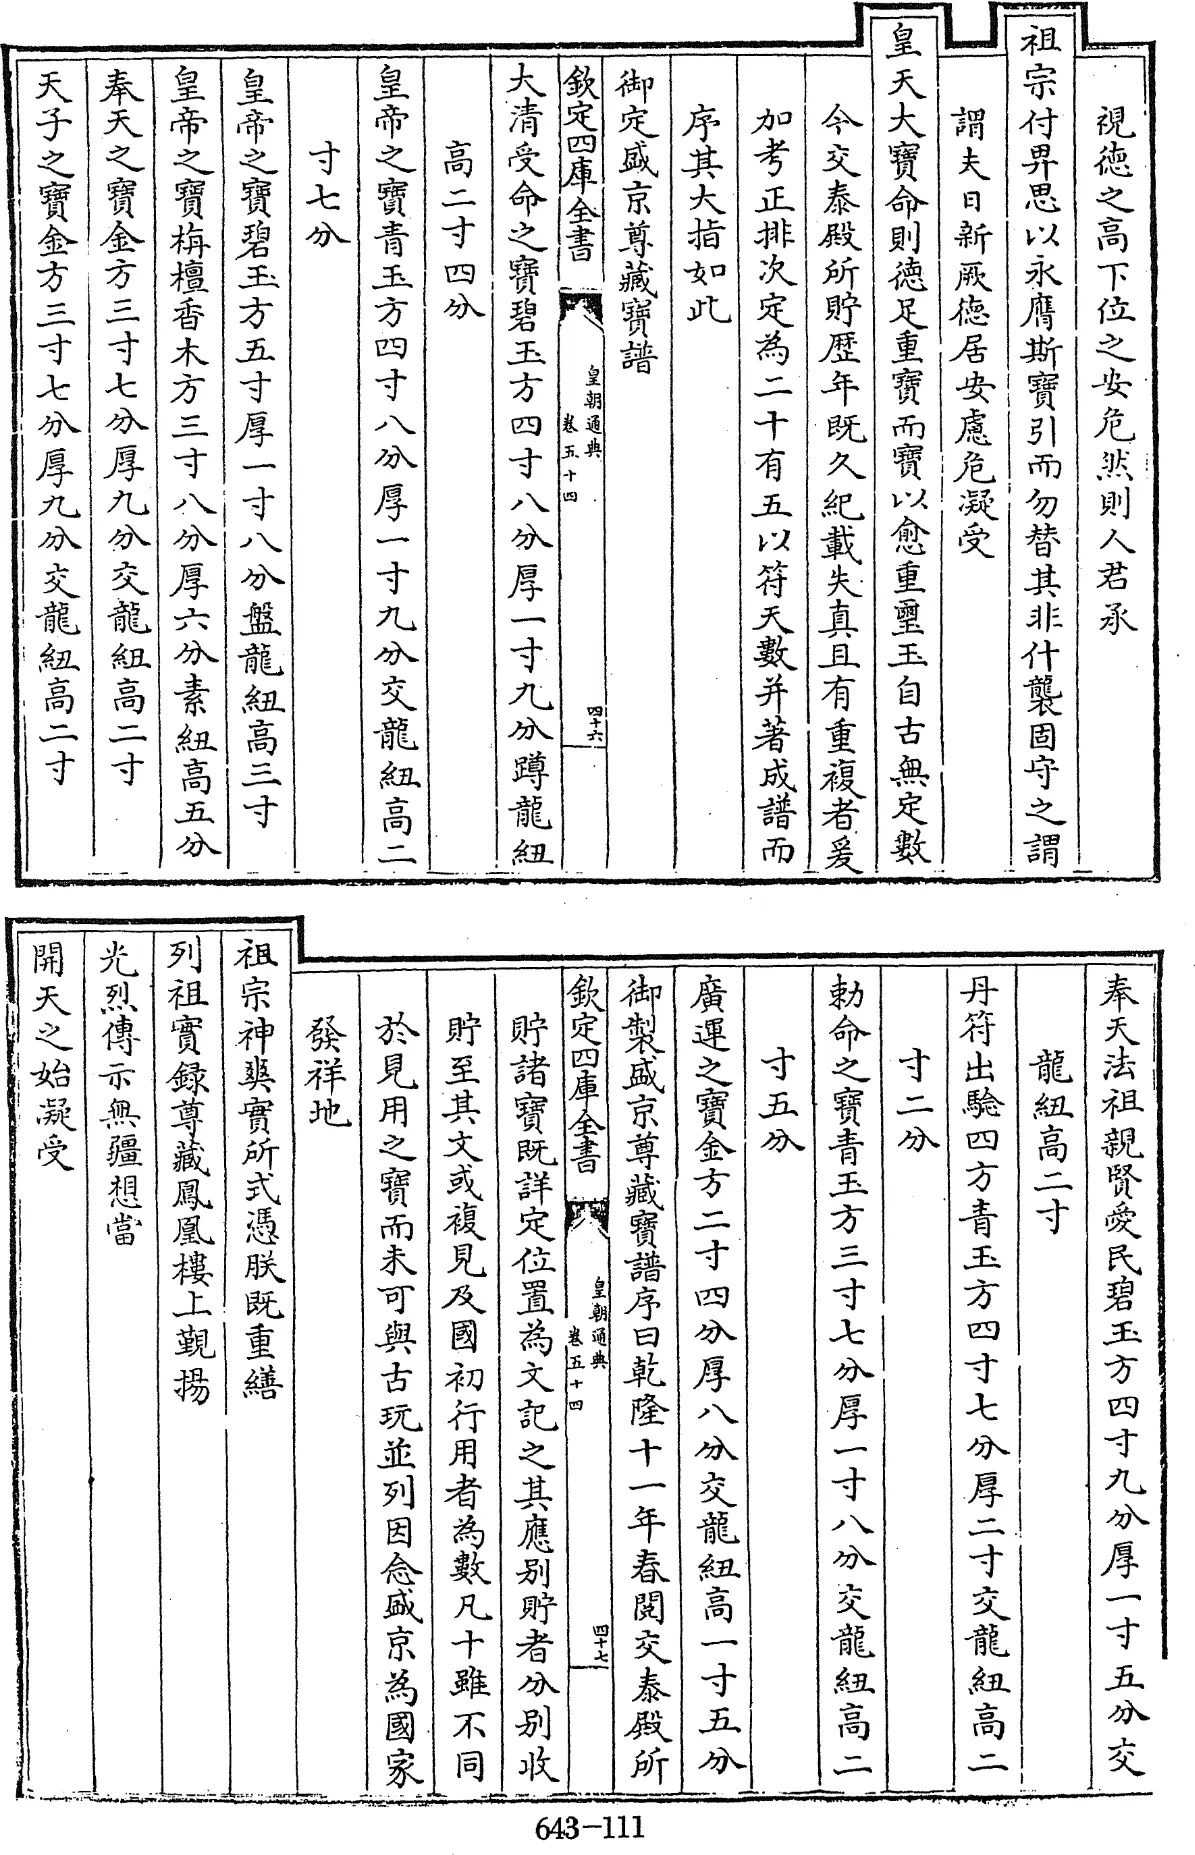 視德之高下位之安危然則人君承
祖宗付畀思以永膺斯寶引而勿替其非什襲固守之謂
謂夫日新厥德居安慮危凝受
皇天大寶命則德足重寶而寶以愈重璽玉自古無定數
今交泰殿所貯歴年既久紀載失真且有重複者爰
加考正排次定為二十有五以符天數并著成譜而
序其大指如此
御定盛京尊藏寶譜
欽定四庫全書
皇朝通典
卷五十四
四十六
大清受命之寶碧玉方四寸八分厚一寸九分蹲龍紐
高二寸四分
皇帝之寶青玉方四寸八分厚一寸九分交龍紐高二
寸七分
皇帝之寶碧玉方五寸厚一寸八分盤龍紐高三寸
皇帝之寶栴檀香木方三寸八分厚六分素紐高五分
奉天之寶金方三寸七分厚九分交龍紐高二寸
天子之寶金方三寸七分厚九分交龍紐高二寸
奉天法祖親賢愛民碧玉方四寸九分厚一寸五分交
龍紐高二寸
丹符出騐四方青玉方四寸七分厚二寸交龍紐高二
寸二分
勅命之寶青玉方三寸七分厚一寸八分交龍紐高二
寸五分
廣運之寶金方二寸四分厚八分交龍紐高一寸五分
御製盛京尊藏寶譜序曰乾隆十一年春閱交泰殿所
欽定四庫全書
皇朝通典
卷五十四
四十七
貯諸寶既詳定位置為文記之其應别貯者分别收
貯至其文或複見及國初行用者為數凡十雖不同
於見用之寶而未可與古玩並列因念盛京為國家
發祥地
祖宗神爽實所式憑朕既重繕
列祖實錄尊藏鳳凰樓上觐揚
光烈傳示無疆想當
開天之始凝受
643-111